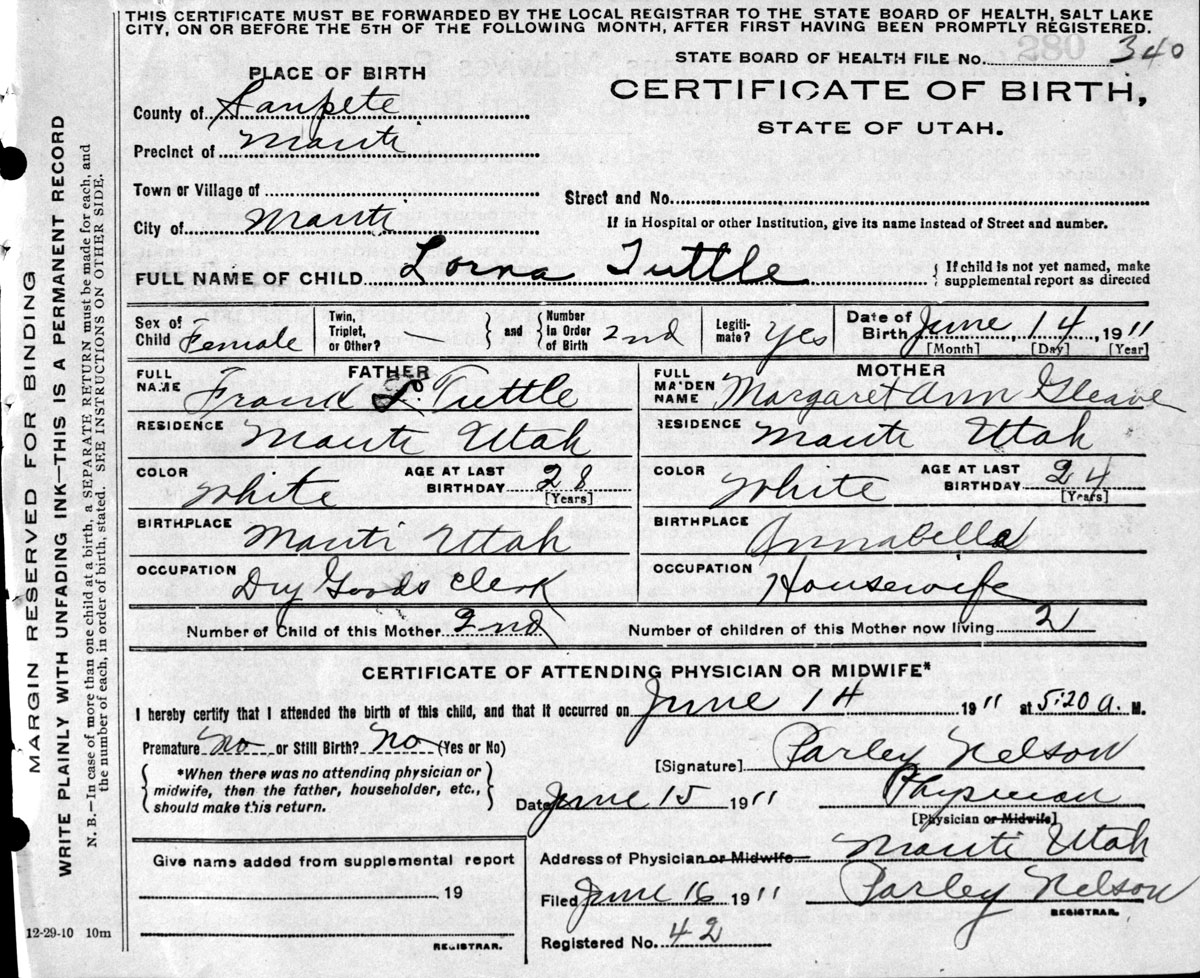 THIS CERTIFICATE MUST BE FORWARDED BY THE LOCAL REGISTRAR TO THE STATE BOARD OF HEALTH, SALT LAKE
CITY, ON OR BEFORE THE 5TH OF THE FOLLOWING MONTH, AFTER FIRST HAVING BEEN PROMPTLY REGISTERED.
280
STATE BOARD OF HEALTH FILE No. 340
PLACE OF BIRTH
CERTIFICATE OF BIRTH,
STATE OF UTAH.
County of Sanpete
Precinct of Manti
Town or Village of
Street and No.
City of Manti
If in Hospital or other Institution, give its name instead of Street and number.
FULL NAME OF CHILD Lorna Tuttle
{ If child is not yet named, make
supplemental report as directed
Sex of Child Female
Twin, Triplet, or Other? —
and
Number in Order of Birth 2nd
Legiti-mate? Yes
Date of Birth June 14, 1911
[Month] [Day] [Year]
FATHER
FULL NAME Frank L. Tuttle
RESIDENCE Manti Utah
COLOR White AGE AT LAST BIRTHDAY 28
[Years]
BIRTHPLACE Manti Utah
OCCUPATION Dry Goods Clerk
MOTHER
FULL MAIDEN NAME Margaret Ann Gleave
RESIDENCE Manti Utah
COLOR White AGE AT LAST BIRTHDAY 24
[Years]
BIRTHPLACE Annabella
OCCUPATION Housewife
Number of Child of this Mother 2nd Number of children of this Mother now living 2
CERTIFICATE OF ATTENDING PHYSICIAN OR MIDWIFE*
I hereby certify that I attended the birth of this child, and that it occurred on June 14 1911 at 5:20 a. M.
Premature No or Still Birth? No (Yes or No)
[Signature] Parley Nelson
*When there was no attending physician or
midwife, then the father, householder, etc.,
should make this return.
Date June 15 1911 Physician
[Physician or Midwife]
Give name added from supplemental report
19
REGISTRAR.
Address of Physician or Midwife Manti Utah
Filed June 16 1911 Parley Nelson
REGISTRAR.
Registered No. 42
12-29-10 10m
MARGIN RESERVED FOR BINDING
WRITE PLAINLY WITH UNFADING INK—THIS IS A PERMANENT RECORD
N. B.—In case of more than one child at a birth, a SEPARATE RETURN must be made for each, and
the number of each, in order of birth, stated. SEE INSTRUCTIONS ON OTHER SIDE.